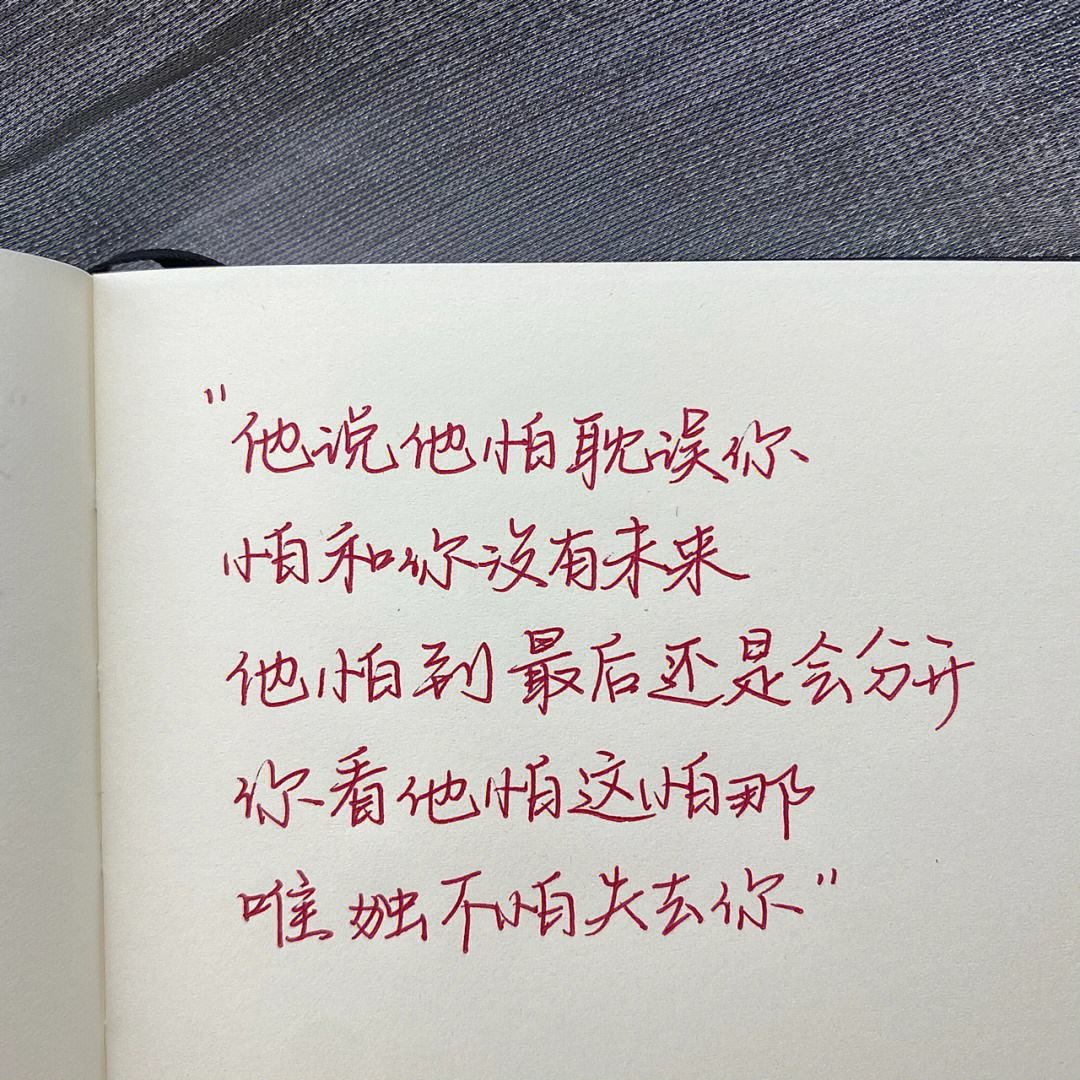 "他说他怕耽误你
怕和你没有未来
他怕到最后还是会分开
你看他怕这怕那
唯独不怕失去你"